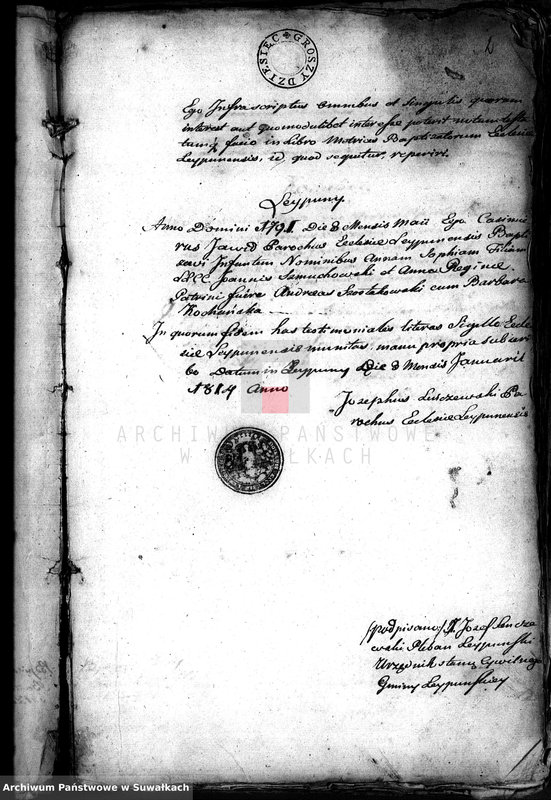 DZIESIĘC GROSZY
2
Ego Infra scriptus omnibus et singulis quorum
interest aut quomodolibet interesse poterit notum testa
tumq facio in Libro Metrices Baptisatorum Ecclesiæ
Leypunensis, id quod sequitur, reperiri.
Leypuny.
Anno Domini 1791 Die 8 Mensis Maii Ego Casimi
rus Parochus Ecclesiæ Leypunensis Bapti
savi Infantem Nominibus Annam Sophiam Filiam
Joannis Samuchowski et Anna Reginæ
Patrini fuere Andreas cum Barbara
Kochańska
In quorum fidem has testimoniales literas Sigillo Eccle
siæ Leypunensis munitas, manu propria subscri
bo Datum in Leypuny Die 8 Mensis Januarii
1814 Anno
Josephus Pa
rochus Ecclesiæ Leypunensis
ARCHIWUM PAŃSTWOWE
W SUWAŁKACH
/podpisano/ X Jozef
Pleban Leypunski
Urzędnik stanu Cywilnego
Gminy Leypunskiey
Archiwum Państwowe w Suwałkach